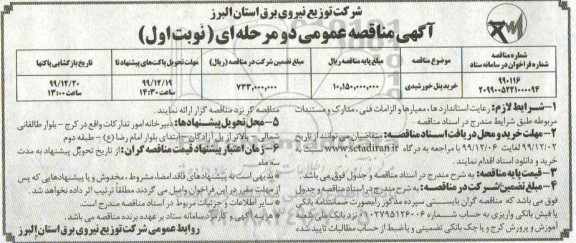 شرکت توزیع نیروی برق استان البرز
آگهی مناقصه عمومی دو مرحله ای (نوبت اول)
شماره مناقصه
شماره فراخوان در سامانه ستاد
موضوع مناقصه
مبلغ پایه مناقصه ریال
مبلغ تضمین شرکت در مناقصه (ریال)
مهلت تحویل پاکت های پیشنهاد تا
تاریخ بازگشایی پاکتها
۹۹۰۱۱۶
۲۰۹۹۰۰۵۲۲۱۰۰۰۰۹۴
خرید پنل خورشیدی
۱۰,۱۵۰,۰۰۰,۰۰۰
۷۳۳,۰۰۰,۰۰۰
۹۹/۱۲/۱۹
۱۴:۳۰ ساعت
۹۹/۱۲/۲۰
ساعت ۱۳:۰۰
۱-شرایط لازم: رعایت استاندارد ها، معیارها و الزامات فنی، مدارک و مستندات
مربوطه طبق شرایط مندرج در اسناد مناقصه
۲-مهلت خرید و محل دریافت اسناد مناقصه: متقاضیان می توانند از تاریخ
۹۹/۱۲/۰۲ لغایت ۹۹/۱۲/۰۶ با مراجعه به درگاه www.setadiran.ir نسبت به
خرید و دانلود اسناد اقدام نمایند.
۳-قیمت پایه مناقصه: به شرح مندرج در اسناد مناقصه و جدول فوق می باشد.
۴-مبلغ تضمین شرکت در مناقصه: به شرح مندرج در اسناد مناقصه و جدول
فوق می باشد که مناقصه گران بایستی سپرده مذکور را بصورت ضمانتنامه بانکی
یا فیش بانکی واریزی به حساب شماره ۰۰۲۷۹۵۱۲۶۰۰۶ نزد بانک تجارت شعبه
آموزش و پرورش کرج و یا چک بانکی تضمینی و یا ضبط از حساب مطالبات تایید شده
مناقصه گر نزد مناقصه گزار ارائه نمایند.
۵-محل تحویل پیشنهادها: دبیرخانه امور تدارکات واقع در کرج - بلوار طالقانی
شمالی - بالاتر از پل آزادگان - ابتدای بلوار امام رضا (ع) - طبقه دوم
۶-زمان اعتبار پیشنهاد قیمت مناقصه گران: از تاریخ تحویل پیشنهاد به مدت
سه ماه
* بدیهی است به پیشنهادهای فاقد امضا، مشروط، مخدوش و یا پیشنهادهایی که پس
از مهلت مقرر در این فراخوان واصل می گردند مطلقا ترتیب اثر داده نخواهد شد.
* سایر اطلاعات و جزئیات مربوط در اسناد مناقصه مندرج است.
* هزینه آگهی و کارمزد سامانه ستاد بر عهده برنده مناقصه می باشد.
روابط عمومی شرکت توزیع نیروی برق استان البرز